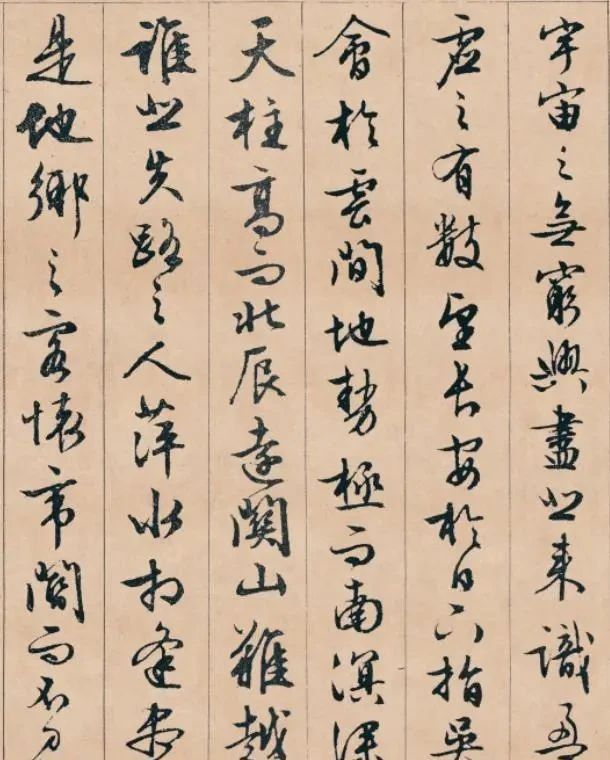 宇宙之無窮興盡悲來識盈
虛之有數望長安於日下指吳
會於雲間地勢極而南溟深
天柱高而北辰遠關山難越
誰悲失路之人萍水相逢盡
是他鄉之客懷帝閽而不見